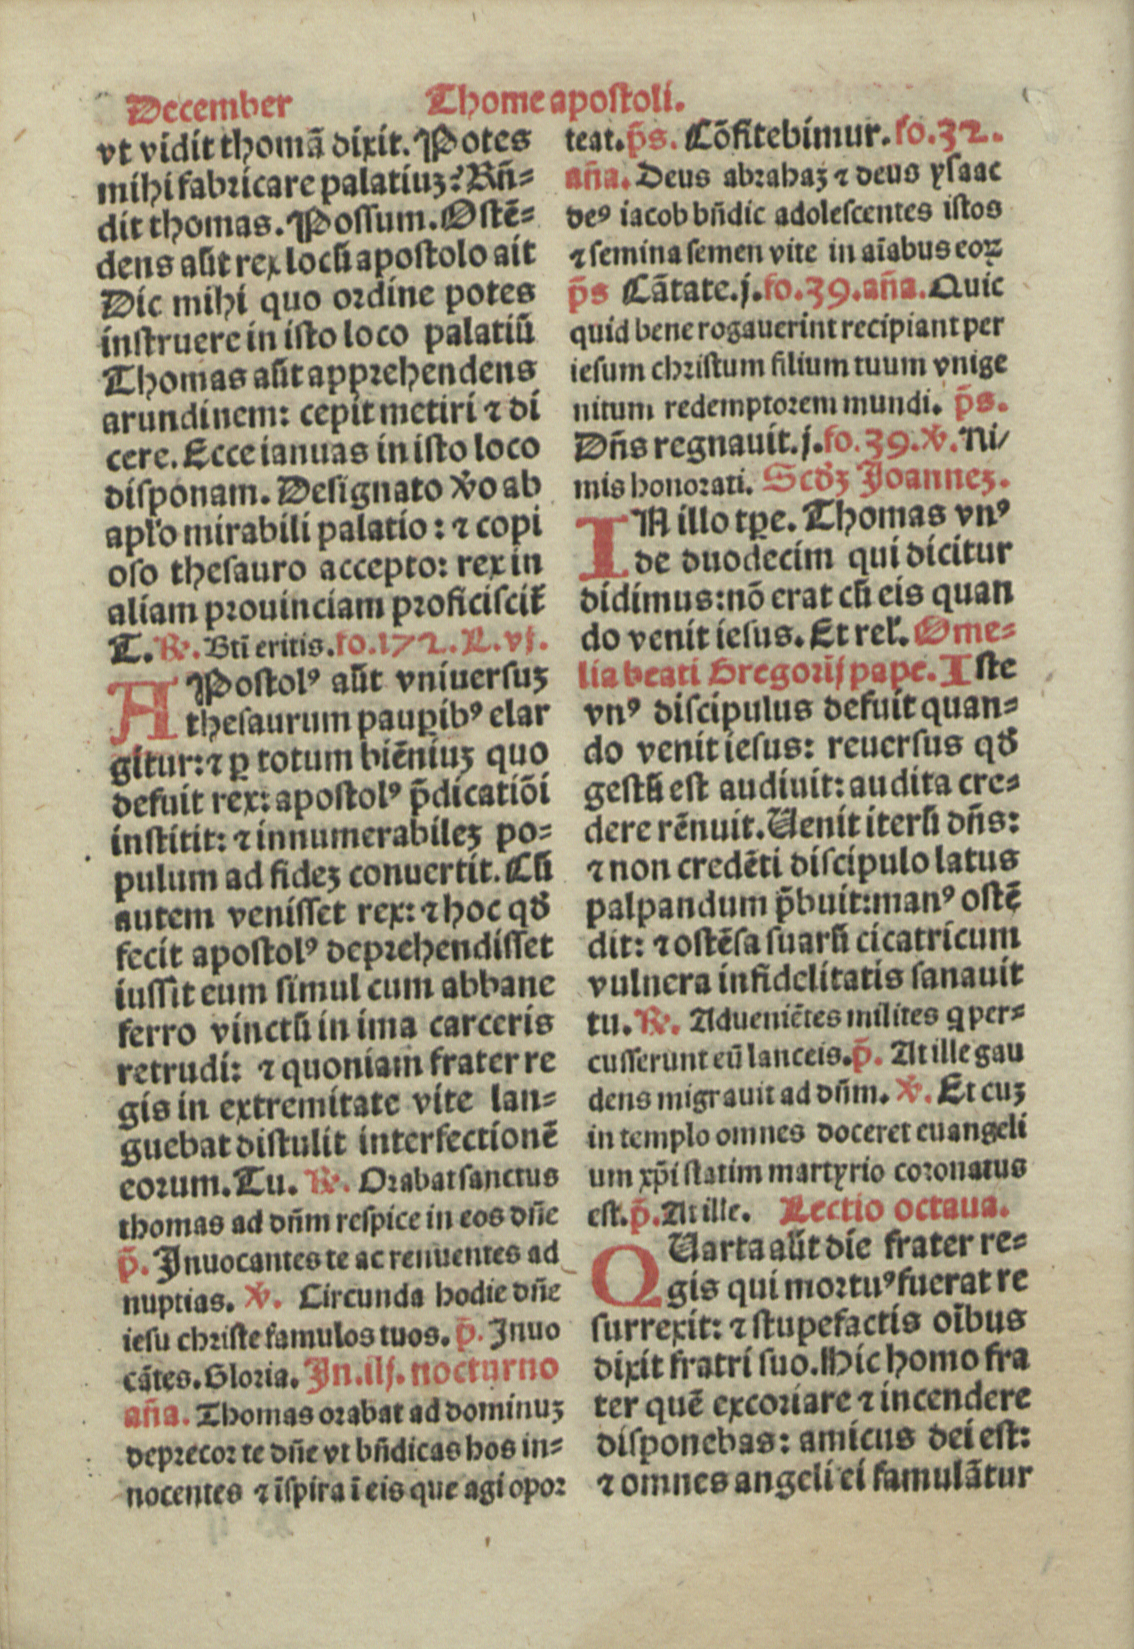 December Thome apostoli.
vt vidit thomā dixit. Potes
mihi fabricare palatiuꝫ? Rñ-
dit thomas. Possum. Ostē-
dens aūt rex locū apostolo ait
Dic mihi quo ordine potes
instruere in isto loco palatiū
Thomas aūt apprehendens
arundinem: cepit metiri ⁊ di
cere. Ecce ianuas in isto loco
disponam. Designato v̄o ab
apło mirabili palatio: ⁊ copi
oso thesauro accepto: rex in
aliam prouinciam proficiscit̄
T. ℟. Bti eritis. fo. 172. L. vj.
APostolꝰ aūt vniuersuꝫ
thesaurum pauꝑibꝰ elar
gitur: ⁊ ꝑ totum biēniuꝫ quo
defuit rex: apostolꝰ p̄dicatiōi
institit: ⁊ innumerabileꝫ po-
pulum ad fideꝫ conuertit. Cū
autem venisset rex: ⁊ hoc qđ
fecit apostolꝰ deprehendisset
iussit eum simul cum abbane
ferro vinctū in ima carceris
retrudi: ⁊ quoniam frater re
gis in extremitate vite lan-
guebat distulit interfectionē
eorum. Tu. ℟. Orabat sanctus
thomas ad dñm respice in eos dñe
p̄. Inuocantes te ac renuentes ad
nuptias. ℣. Circunda hodie dñe
iesu christe famulos tuos. p̄. Inuo
cātes. Gloria. In. iij. nocturno
aña. Thomas orabat ad dominuꝫ
deprecor te dñe vt bñdicas hos in-
nocentes ⁊ īspira ī eis que agi opor
teat. p̄s. Cōfitebimur. fo. 32.
aña. Deus abrahaꝫ ⁊ deus ysaac
deꝰ iacob bñdic adolescentes istos
⁊ semina semen vite in aīabus eoꝝ
p̄s Cātate. j. fo. 39. aña. Quic
quid bene rogauerint recipiant per
iesum christum filium tuum vnige
nitum redemptorem mundi. p̄s.
Dñs regnauit. j. fo. 39. ℣. Ni/
mis honorati. Scđꝫ Joanneꝫ.
IN illo tꝑe. Thomas vnꝰ
de duodecim qui dicitur
didimus: nō erat cū eis quan
do venit iesus. Et rel̄. Ome-
lia beati Gregorij pape. Iste
vnꝰ discipulus defuit quan-
do venit iesus: reuersus qđ
gestū est audiuit: audita cre-
dere rēnuit. Uenit iterū dñs:
⁊ non credēti discipulo latus
palpandum p̄buit: manꝰ ostē
dit: ⁊ ostēsa suarū cicatricum
vulnera infidelitatis sanauit
tu. ℟. Adueniētes milites ꝗ per-
cusserunt eū lanceis. p̄. At ille gau
dens migrauit ad dñm. ℣. Et cuꝫ
in templo omnes doceret euangeli
um xp̄i statim martyrio coronatus
est. p̄. At ille. Lectio octaua.
QUarta aūt die frater re-
gis qui mortuꝰ fuerat re
surrexit: ⁊ stupefactis oībus
dixit fratri suo. Hic homo fra
ter quē excoriare ⁊ incendere
disponebas: amicus dei est:
⁊ omnes angeli ei famulātur